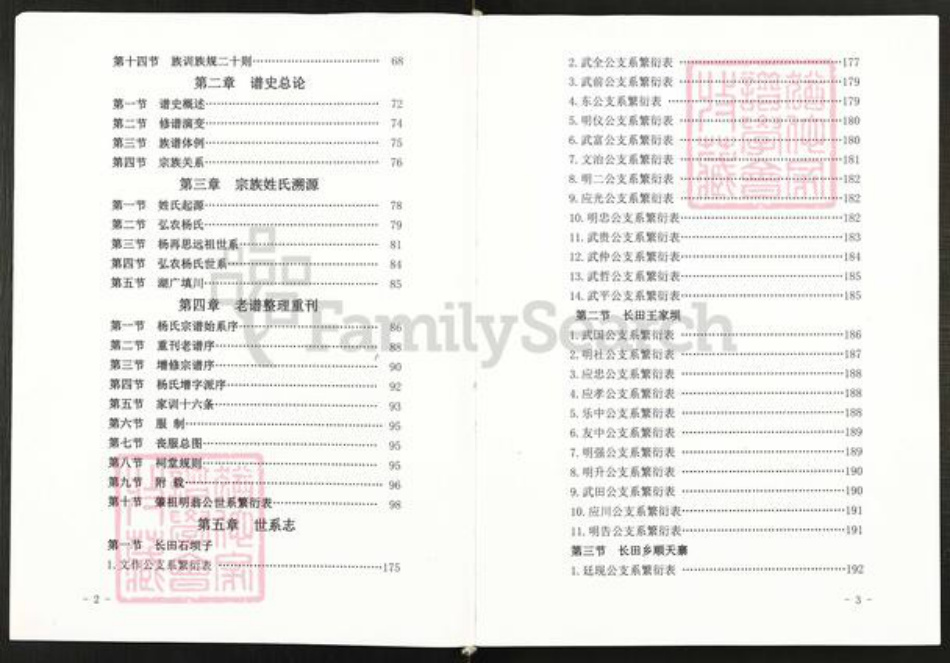 第十四节 族训族规二十则……68
第二章 谱史总论
第一节 谱史概述……72
第二节 修谱演变……74
第三节 族谱体例……75
第四节 宗族关系……76
第三章 宗族姓氏溯源
第一节 姓氏起源……78
第二节 弘农杨氏……79
第三节 杨再思远祖世系……81
第四节 弘农杨氏世系……84
第五节 湖广填川……85
第四章 老谱整理重刊
第一节 杨氏宗谱始系序……86
第二节 重刊老谱序……88
第三节 增修宗谱序……90
第四节 杨氏增字派序……92
第五节 家训十六条……93
第六节 服 制……95
第七节 丧服总图……95
第八节 祠堂规则……95
第九节 附 载……96
第十节 肇祖明翁公世系繁衍表……98
第五章 世系志
第一节 长田石坝子
1.文作公支系繁衍表……175
- 2 -
2.武全公支系繁衍表……177
3.武前公支系繁衍表……179
4.东公支系繁衍表……179
5.明仪公支系繁衍表……180
6.武富公支系繁衍表……180
7.文治公支系繁衍表……181
8.明二公支系繁衍表……182
9.应光公支系繁衍表……182
10.明忠公支系繁衍表……182
11.武贵公支系繁衍表……183
12.武仲公支系繁衍表……184
13.武哲公支系繁衍表……185
14.武平公支系繁衍表……185
第二节 长田王家坝
1.武国公支系繁衍表……186
2.明社公支系繁衍表……187
3.应忠公支系繁衍表……188
4.应孝公支系繁衍表……188
5.乐中公支系繁衍表……188
6.友中公支系繁衍表……189
7.明强公支系繁衍表……189
8.明升公支系繁衍表……190
9.武田公支系繁衍表……190
10.应川公支系繁衍表……191
11.明告公支系繁衍表……191
第三节 长田乡顺天寨
1.廷现公支系繁衍表……192
- 3 -
FamilySearch